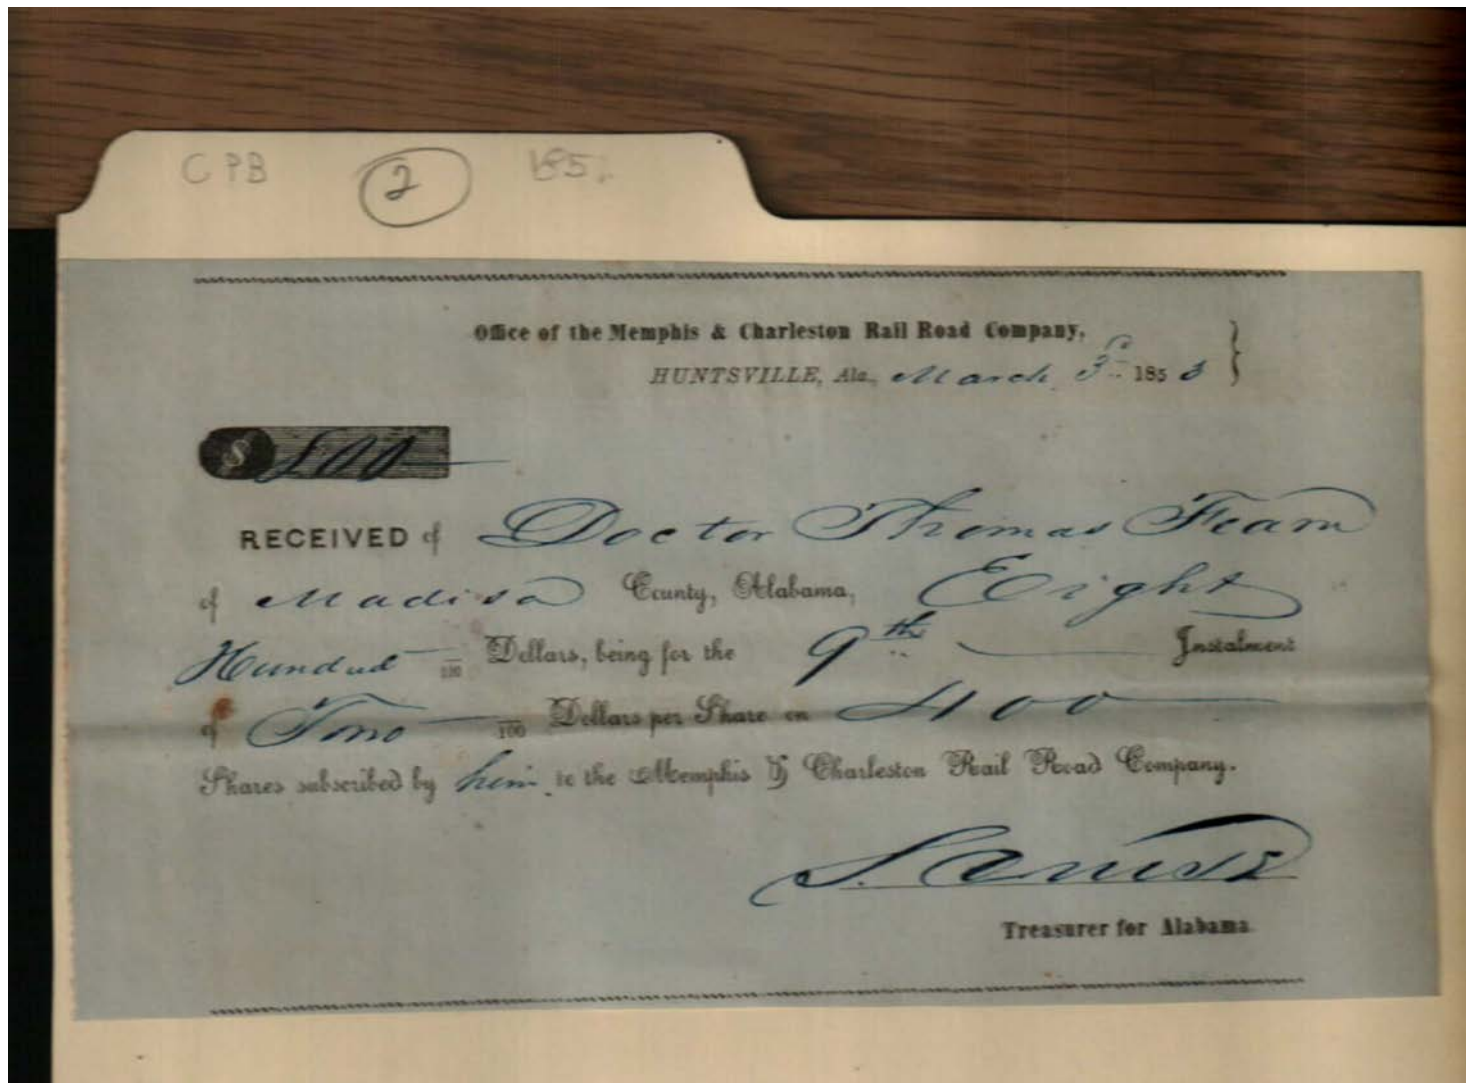 CPB 2 185
Office of the Memphis & Charleston Rail Road Company,
HUNTSVILLE, Ala., March 3d 1853
$ 800
RECEIVED of Doctor Thomas Fearn
of Madison County, Alabama, Eight
Hundred /100 Dollars, being for the 9th Instalment
of Two /100 Dollars per Share on 400
Shares subscribed by him to the Memphis & Charleston Rail Road Company.
S. Cruse
Treasurer for Alabama.